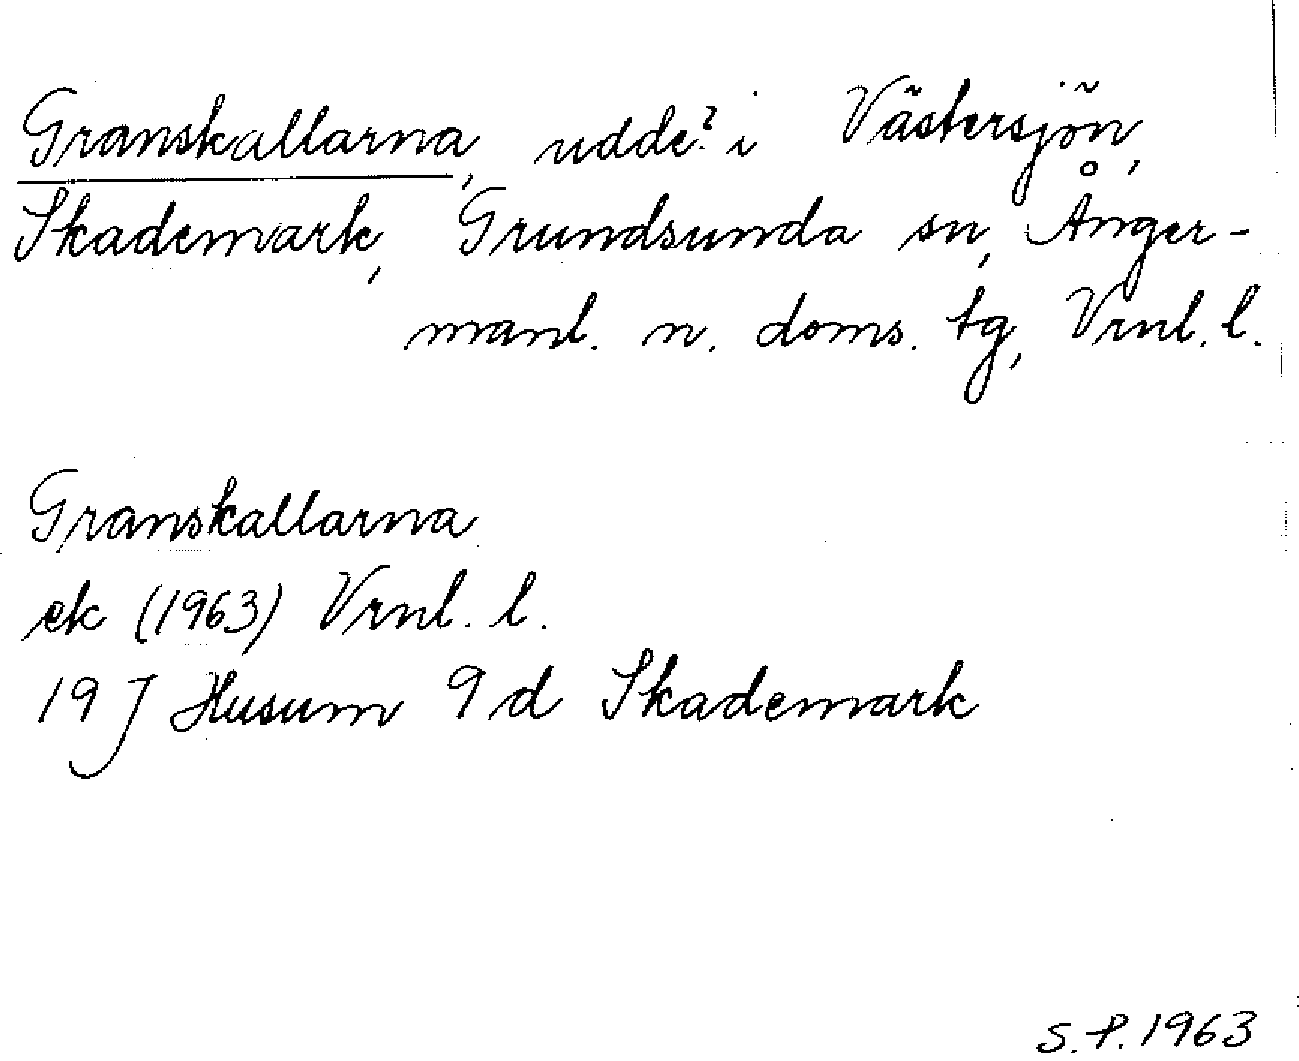 Granskallarna, udde? i Västersjön,
Skademark, Grundsunda sn, Ånger-
manl. n. doms. tg, Vrnl. l.
Granskallarna
ek (1963) Vrnl. l.
19 J Husum 9 d Skademark
S.P. 1963